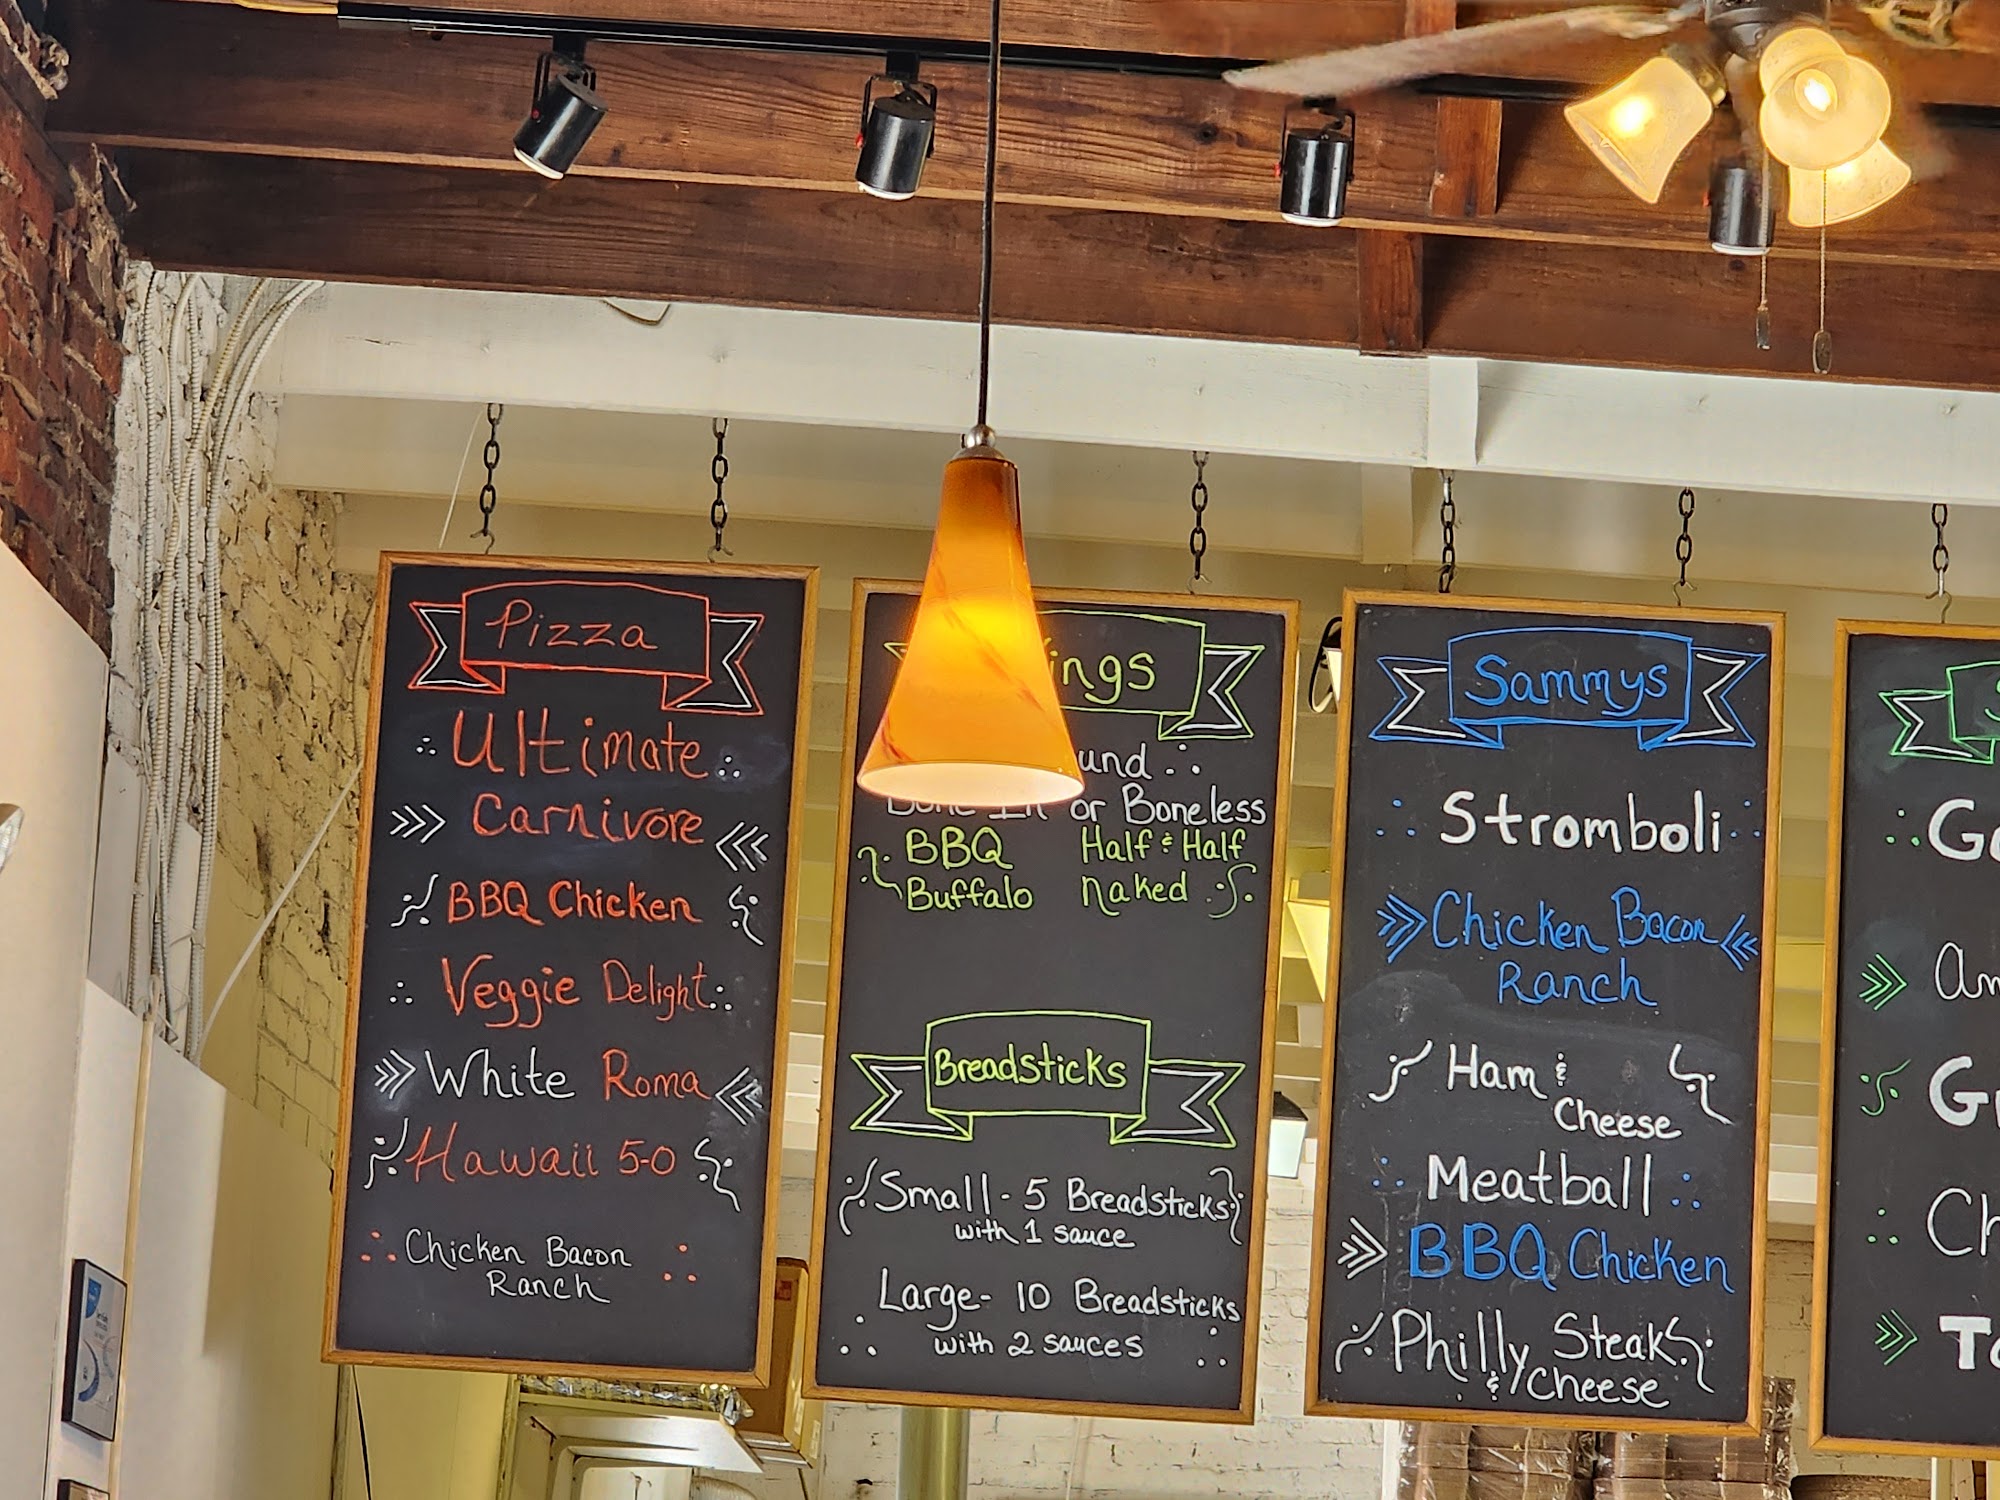 Pizza
Ultimate
Carnivore
BBQ Chicken
Veggie Delight
White Roma
Hawaii 5-0
Chicken Bacon
Ranch
ings
und
Bone In or Boneless
BBQ Half & Half
Buffalo Naked
Breadsticks
Small - 5 Breadsticks
with 1 sauce
Large - 10 Breadsticks
with 2 sauces
Sammys
Stromboli
Chicken Bacon
Ranch
Ham &
Cheese
Meatball
BBQ Chicken
Philly Steak
& Cheese